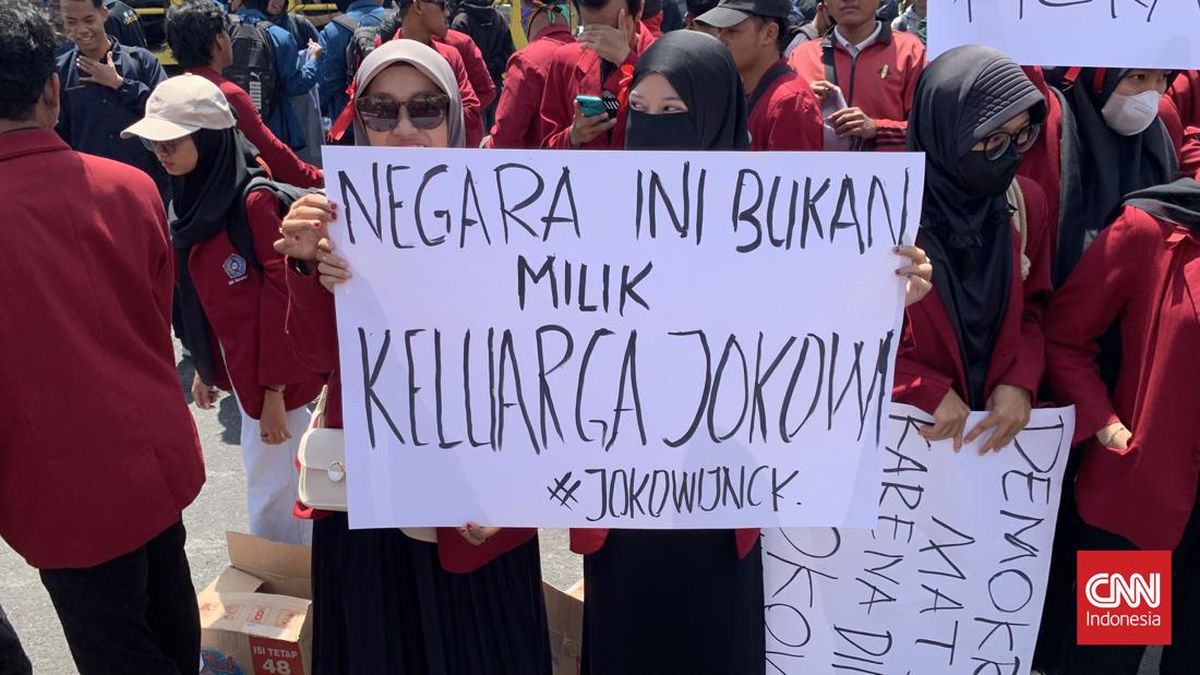 NEGARA INI BUKAN
MILIK
KELUARGA JOKOWI
#JOKOWIJNCK.
DEMOKR
MAT
KARENA DI
JOKOW
ISI TETAP
48
CNN
Indonesia